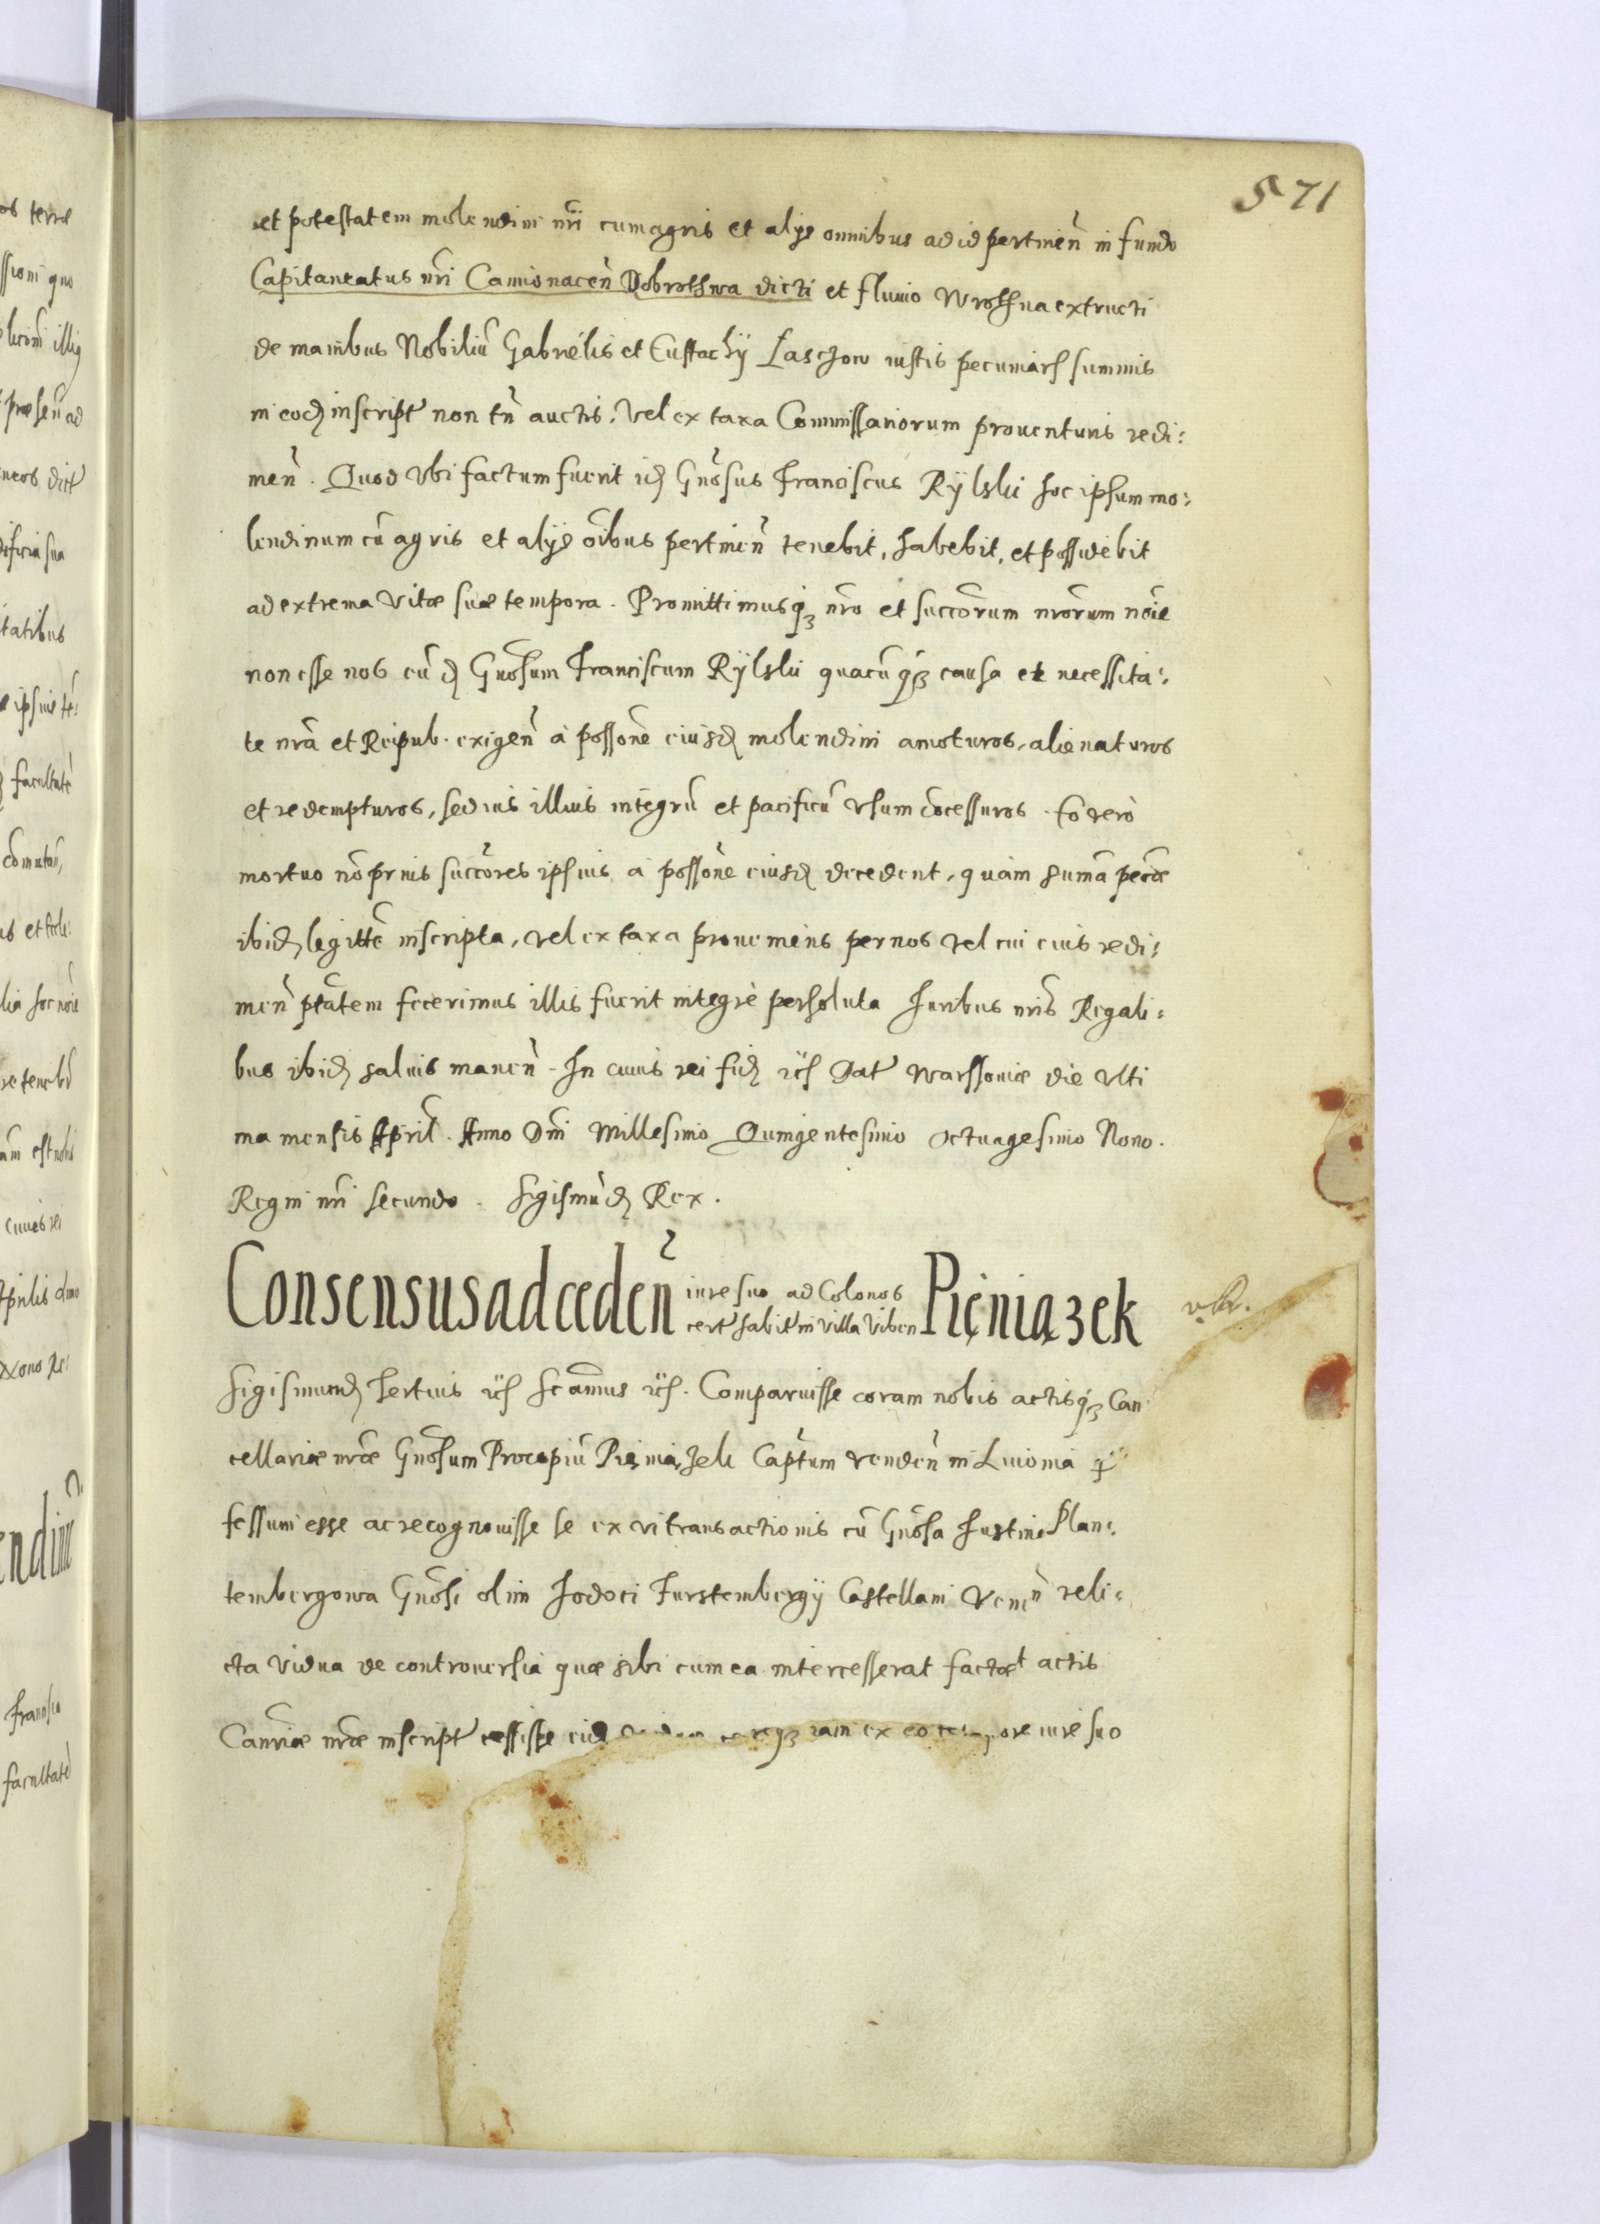 571
et potestatem molendini nri cum agris et alijs omnibus ad id pertinen in fundo
Capitaneatus nri Camionacen Dobrothwa dicti et fluvio Wrothna extructi
de manibus Nobiliũ Gabrielis et Eustachij Laszczow iustis pecuniarȝ summis
in eodȝ inscript non tñ auctis, vel ex taxa Commissariorum prouenturis redi:
men̄. Quod vbi factum fuerit idȝ Gnosus Franciscus Rÿlski hoc ipsum mo:
lendinum cũ agris et alijs oĩbus pertinen̄ tenebit, habebit, et possidebit
ad extrema vitæ suæ tempora. Promittimusqȝ nrõ et succõrum nrõrum nõie
non esse nos eũdȝ Gnosum Franciscum Rÿlski quacũqȝ causa et necessita:
te nrã et Reipub. exigen̄ à possõne eiusdȝ molendini amoturos, alienaturos
et redempturos, sed ius illius integrũ et pacificũ vsum cõcessuros. Eo verò
mortuo nõ prius succõres ipsius à possõne eiusdȝ decedent, quàm sum̃a pecũæ
ibidȝ legittẽ inscripta, vel ex taxa proueniens per nos vel cui eius redi:
men̄ ptãtem fecerimus illis fuerit integrè persoluta Iuribus nris Regali:
bus ibidȝ saluis manen̄. In cuius rei fidȝ rc̃ Dat Warssouiæ die vlti
ma mensis April. Anno Dni Millesimo Quingentesimo Octuagesimo Nono.
Regni nri secundo. Sigismũdȝ Rex.
Consensus ad ceden̄ iure suo ad Colonos
cert habit in villa Viben Pięniązek
Sigismundȝ Tertius rc̃ Sc̃amus rc̃. Comparuisse coram nobis actisqȝ Can
cellariæ nræ Gnosum Procopiũ Pięniązek Captum venden̄ in Liuonia
fessum esse ac recognouisse se ex vi transactionis cũ Gnosa Iustina Plan:
tembergowa Gnosi olim Iodoci Furstembergij Castellani Venen̄ reli:
cta vidua de controuersia quæ sibi cum ea intercesserat factæ actis
Canriæ nræ inscript cessisse eidȝ iam ex eo tempore iure suo